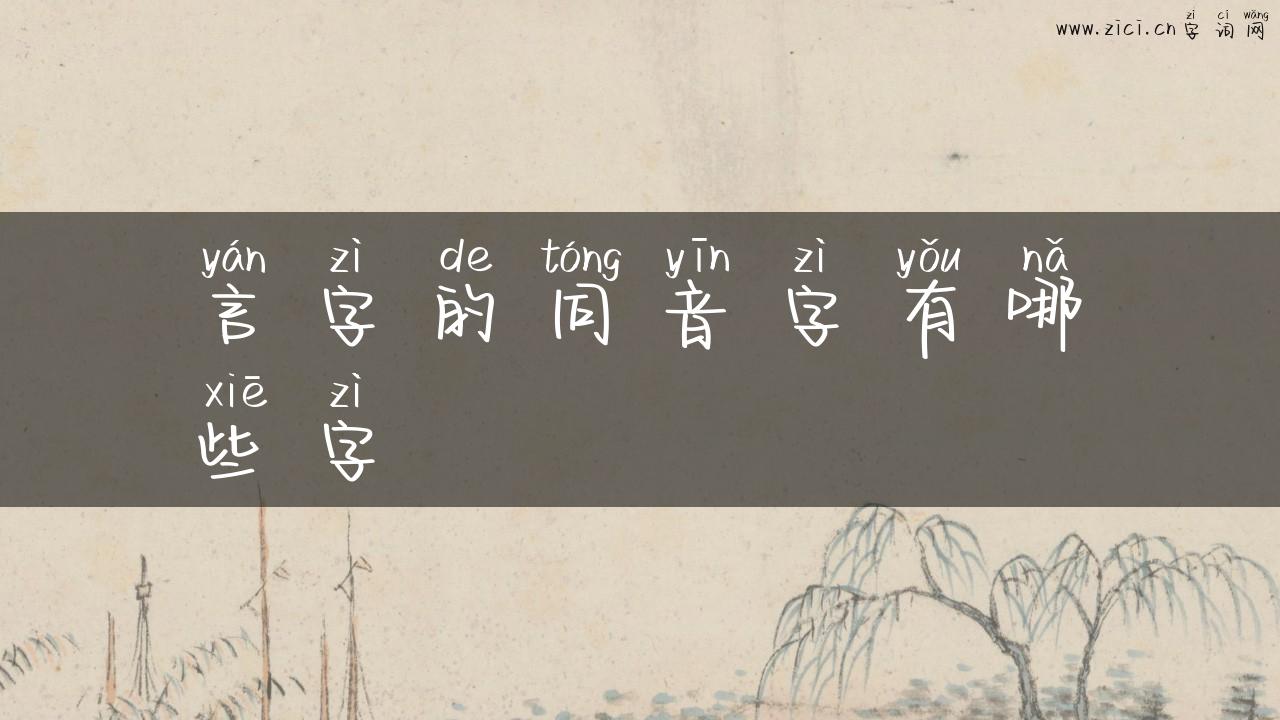 zì cí wǎng
www.zici.cn 字 词 网
yán zì de tóng yīn zì yǒu nǎ
言 字 的 同 音 字 有 哪
xiē zì
些 字